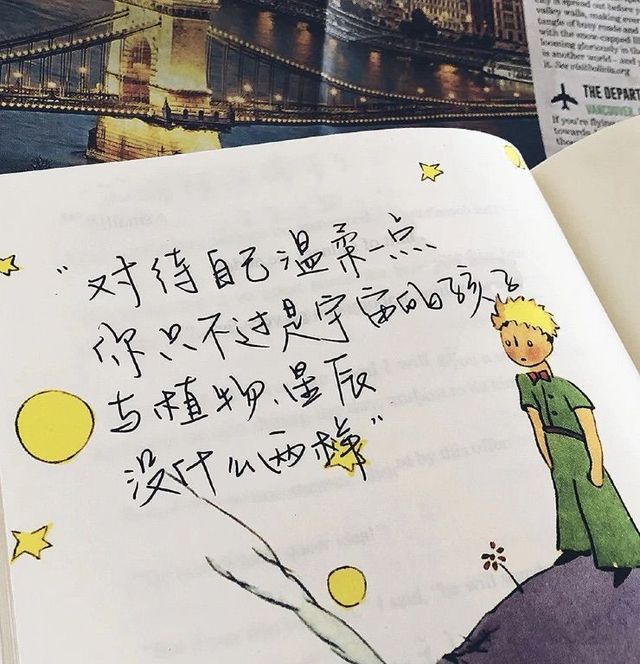 spread out before
valley walls, making ever
tangle of busy roads and
with the snow-capped
looming gloriously in
is another world – and
it. See visitbolivia.org
THE DEPART
VANCOUVER
If you're flying
towards
“对待自己温柔一点
你只不过是宇宙的孩子
与植物、星辰
没什么两样”